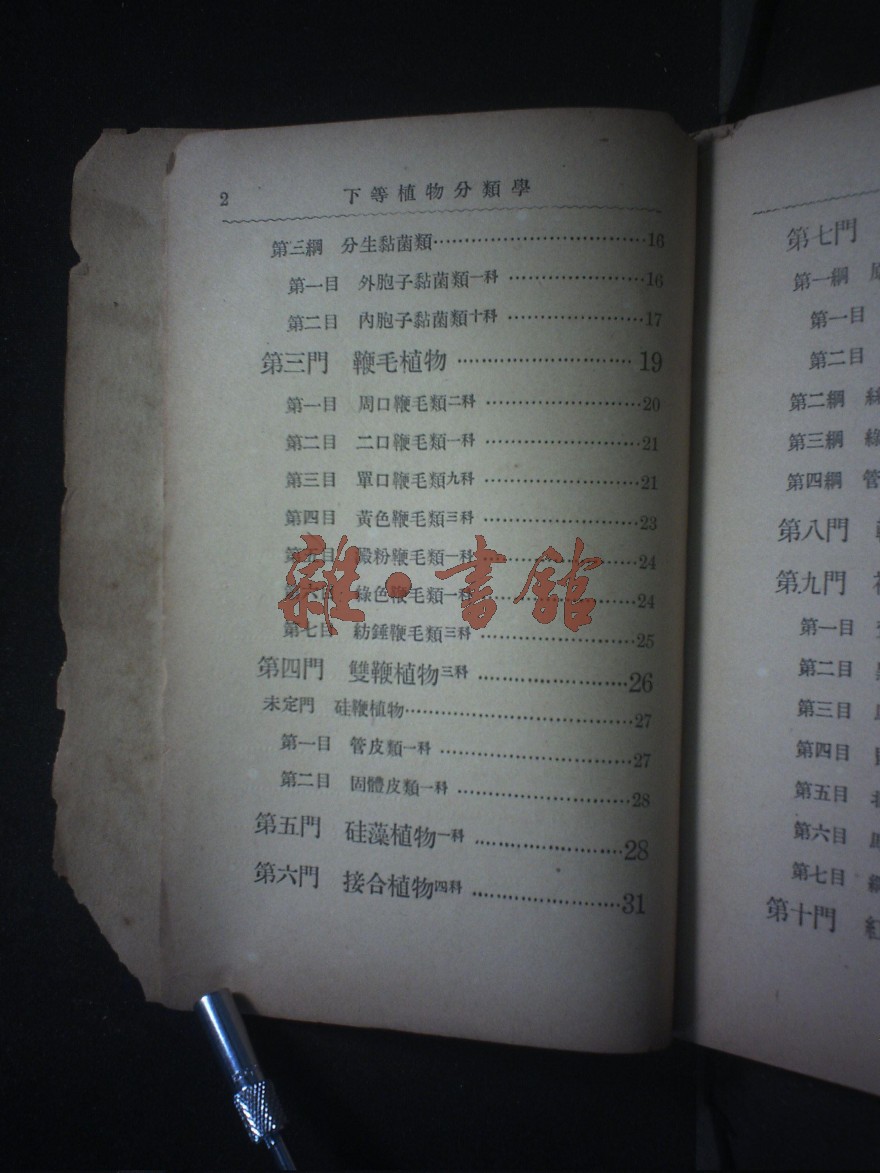 2 下等植物分類學
第三綱 分生黏菌類……16
第一目 外胞子黏菌類一科……16
第二目 內胞子黏菌類十科……17
第三門 鞭毛植物……19
第一目 周口鞭毛類二科……20
第二目 二口鞭毛類一科……21
第三目 單口鞭毛類九科……21
第四目 黃色鞭毛類三科……23
第五目 澱粉鞭毛類一科……24
第六目 綠色鞭毛類一科……24
第七目 紡錘鞭毛類三科……25
第四門 雙鞭植物三科……26
未定門 硅鞭植物……27
第一目 管皮類一科……27
第二目 固體皮類一科……28
第五門 硅藻植物一科……28
第六門 接合植物四科……31
雜·書館
第七門
第一綱
第一目
第二目
第二綱
第三綱
第四綱 管
第八門
第九門
第一目
第二目
第三目
第四目
第五目
第六目
第七目
第十門